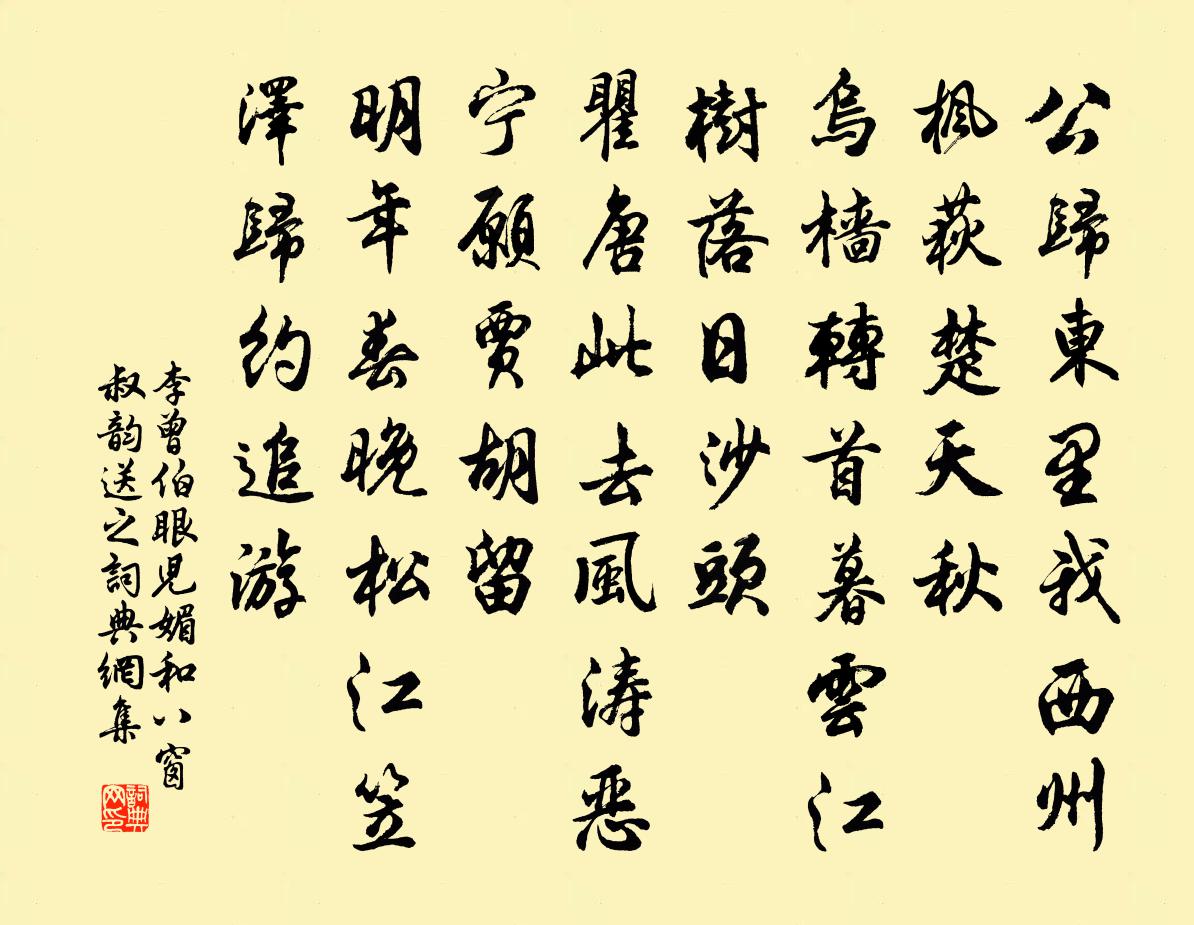 公歸東里我西州
楓荻楚天秋
烏檣轉首暮雲江
樹落日沙頭
瞿唐此去風涛恶
宁願賈胡留
明年春晚松江笠
澤歸約追游
李曾伯眼児媚和八窗
叔韵送之詞典網集
詞典网印